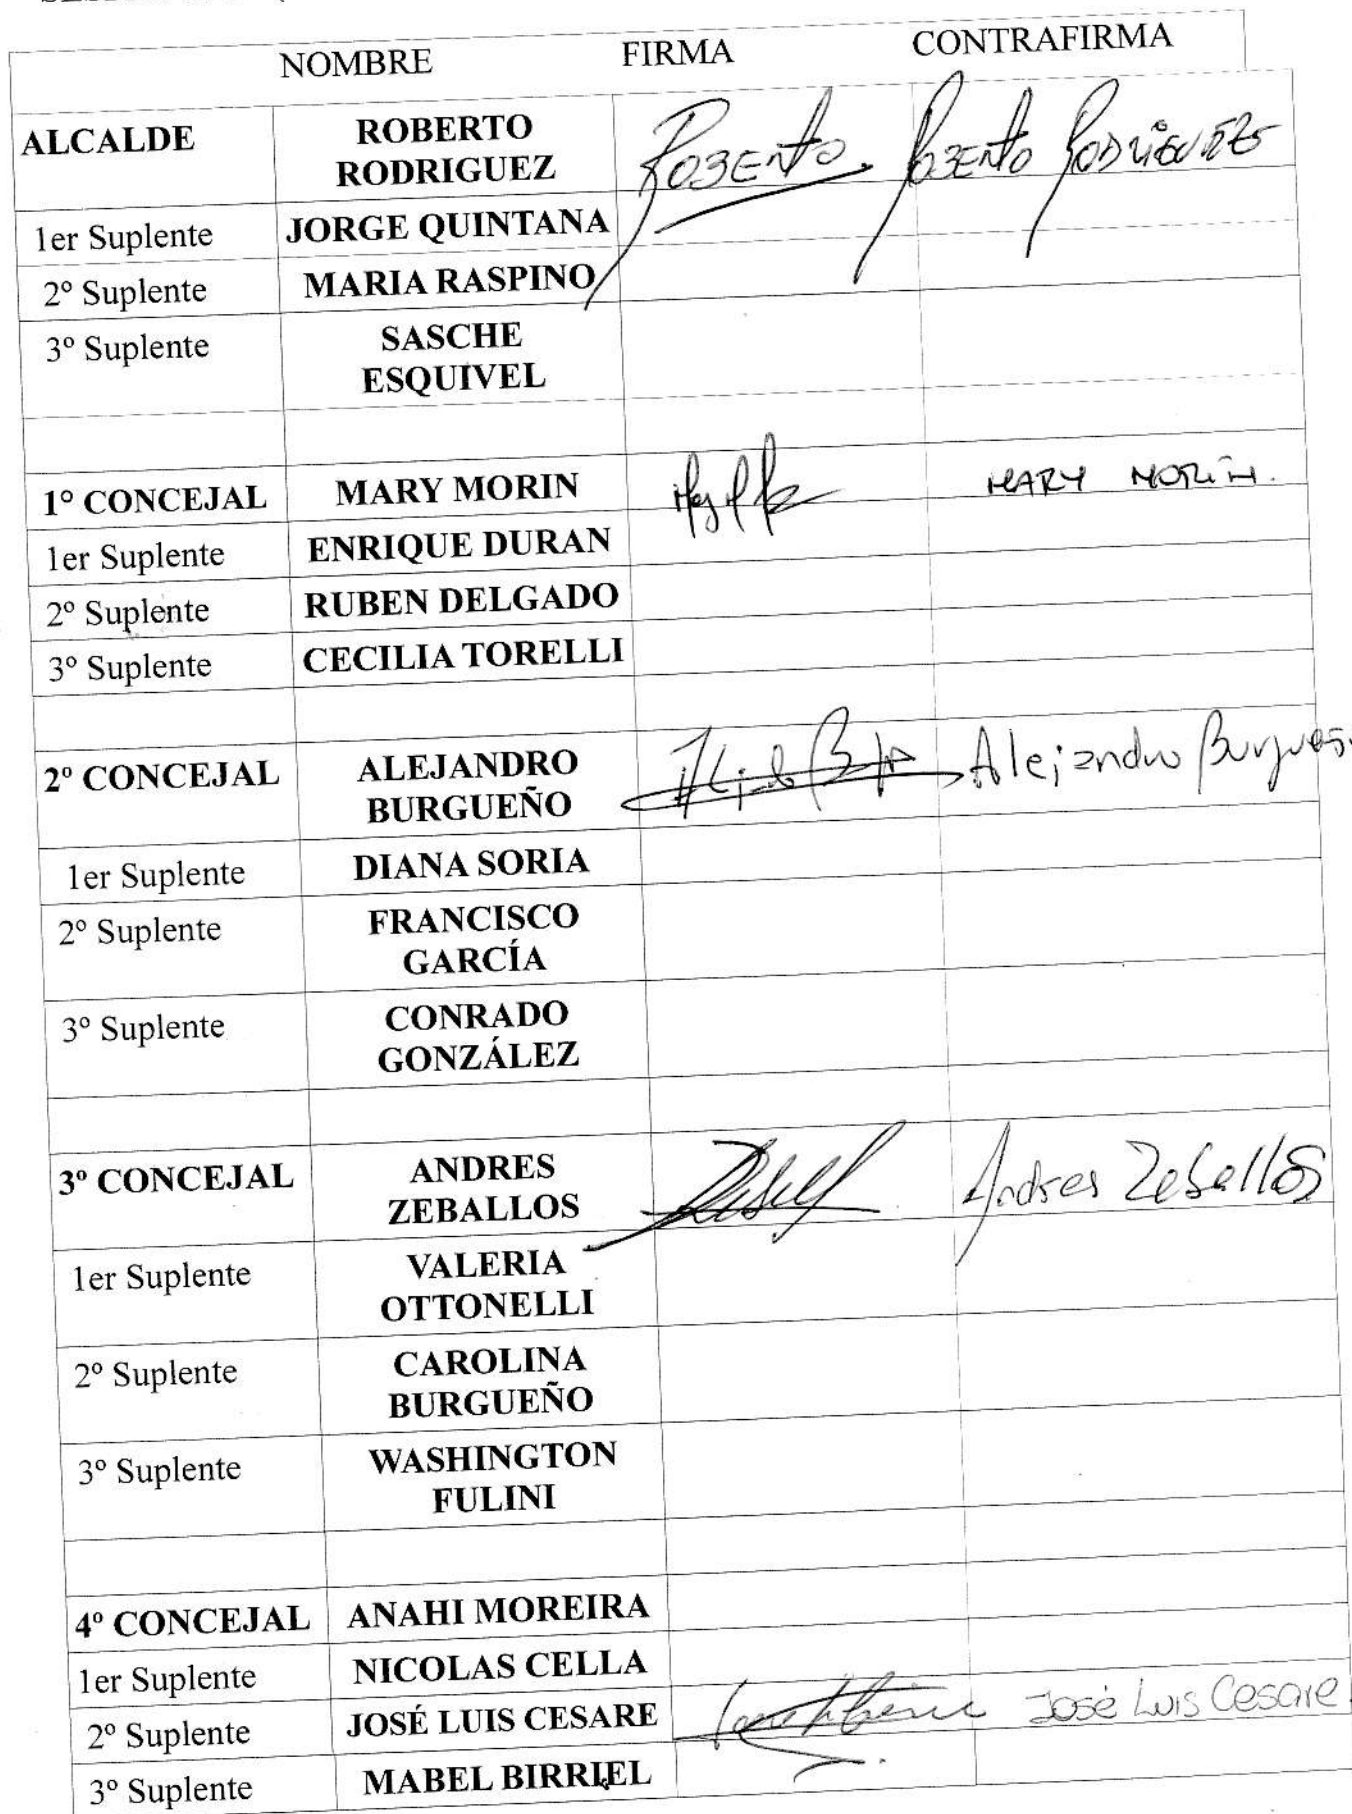 NOMBRE FIRMA CONTRAFIRMA
ALCALDE ROBERTO RODRIGUEZ Roberto Roberto Rodriguez
1er Suplente JORGE QUINTANA
2º Suplente MARIA RASPINO
3º Suplente SASCHE ESQUIVEL
1º CONCEJAL MARY MORIN MARY MORIN.
1er Suplente ENRIQUE DURAN
2º Suplente RUBEN DELGADO
3º Suplente CECILIA TORELLI
2º CONCEJAL ALEJANDRO BURGUEÑO Alejandro
1er Suplente DIANA SORIA
2º Suplente FRANCISCO GARCÍA
3º Suplente CONRADO GONZÁLEZ
3º CONCEJAL ANDRES ZEBALLOS Andres Zeballos
1er Suplente VALERIA OTTONELLI
2º Suplente CAROLINA BURGUEÑO
3º Suplente WASHINGTON FULINI
4º CONCEJAL ANAHI MOREIRA
1er Suplente NICOLAS CELLA
2º Suplente JOSÉ LUIS CESARE José Luis Cesare
3º Suplente MABEL BIRRIEL